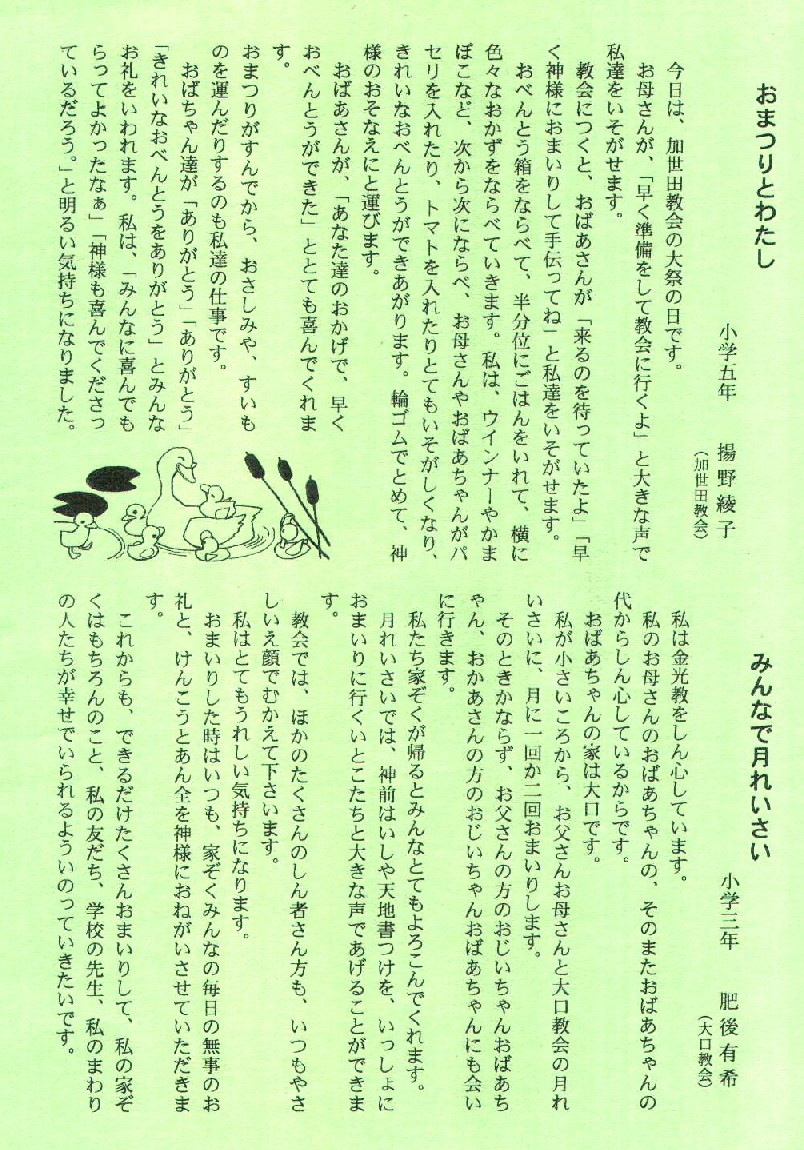 おまつりとわたし
小学五年　揚野綾子
（加世田教会）
今日は、加世田教会の大祭の日です。
お母さんが、「早く準備をして教会に行くよ」と大きな声で
私達をいそがせます。
教会につくと、おばあさんが「来るのを待っていたよ」「早
く神様におまいりして手伝ってね」と私達をいそがせます。
おべんとう箱をならべて、半分位にごはんをいれて、横に
色々なおかずをならべていきます。私は、ウインナーやかま
ぼこなど、次から次にならべ、お母さんやおばあちゃんがパ
セリを入れたり、トマトを入れたりとてもいそがしくなり、
きれいなおべんとうができあがります。輪ゴムでとめて、神
様のおそなえにと運びます。
おばあさんが、「あなた達のおかげで、早く
おべんとうができた」ととても喜んでくれま
す。
おまつりがすんでから、おさしみや、すいも
のを運んだりするのも私達の仕事です。
おばちゃん達が「ありがとう」「ありがとう」
「きれいなおべんとうをありがとう」とみんな
お礼をいわれます。私は、「みんなに喜んでも
らってよかったなぁ」「神様も喜んでくださっ
ているだろう。」と明るい気持ちになりました。
みんなで月れいさい
小学三年　肥後有希
（大口教会）
私は金光教をしん心しています。
私のお母さんのおばあちゃんの、そのまたおばあちゃんの
代からしん心しているからです。
おばあちゃんの家は大口です。
私が小さいころから、お父さんお母さんと大口教会の月れ
いさいに、月に一回か二回おまいりします。
そのときかならず、お父さんの方のおじいちゃんおばあち
ゃん、おかあさんの方のおじいちゃんおばあちゃんにも会い
に行きます。
私たち家ぞくが帰るとみんなとてもよろこんでくれます。
月れいさいでは、神前はいしや天地書つけを、いっしょに
おまいりに行くいとこたちと大きな声であげることができま
す。
教会では、ほかのたくさんのしん者さん方も、いつもやさ
しいえ顔でむかえて下さいます。
私はとてもうれしい気持ちになります。
おまいりした時はいつも、家ぞくみんなの毎日の無事のお
礼と、けんこうとあん全を神様におねがいさせていただきま
す。
これからも、できるだけたくさんおまいりして、私の家ぞ
くはもちろんのこと、私の友だち、学校の先生、私のまわり
の人たちが幸せでいられるよういのっていきたいです。